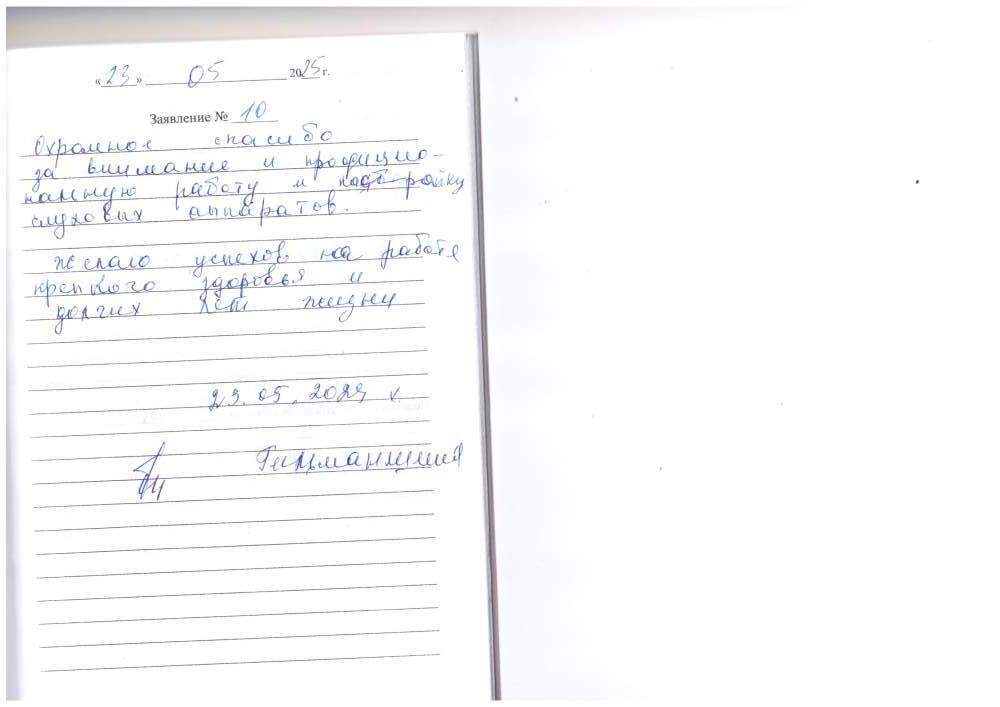 «23» 05 2025 г.
Заявление № 10
Охрамное спасибо
за внимание и профицио-
нальную работу и настройку
слуховых аппаратов.
желаю успехов на работе
крепкого здоровья и
долгих лет жизни
23.05.2025 г.